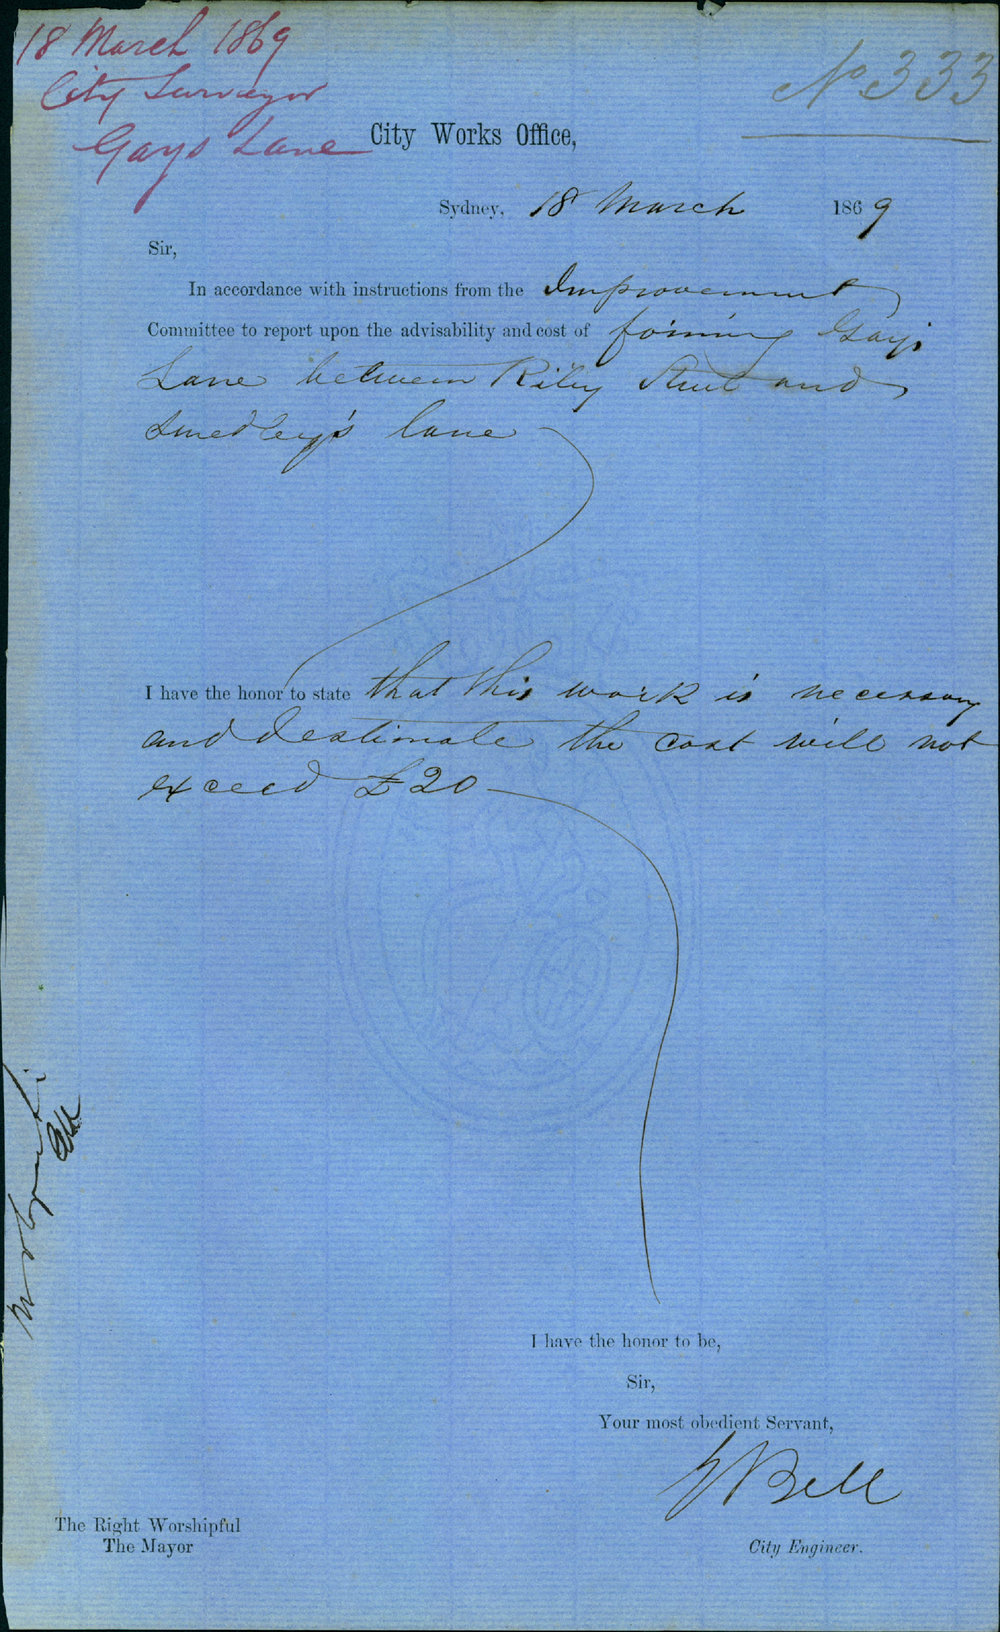 18 March 1869
City Surveyor
Gays Lane
No. 333
City Works Office,
Sydney, 18 March 1869
Sir,
In accordance with instructions from the Improvement
Committee to report upon the advisability and cost of forming Gays
Lane between Riley Street and
Smedley's lane
I have the honor to state that this work is necessary
and I estimate the cost will not
exceed £20
I have the honor to be,
Sir,
Your most obedient Servant,
Bell
The Right Worshipful
The Mayor
City Engineer.